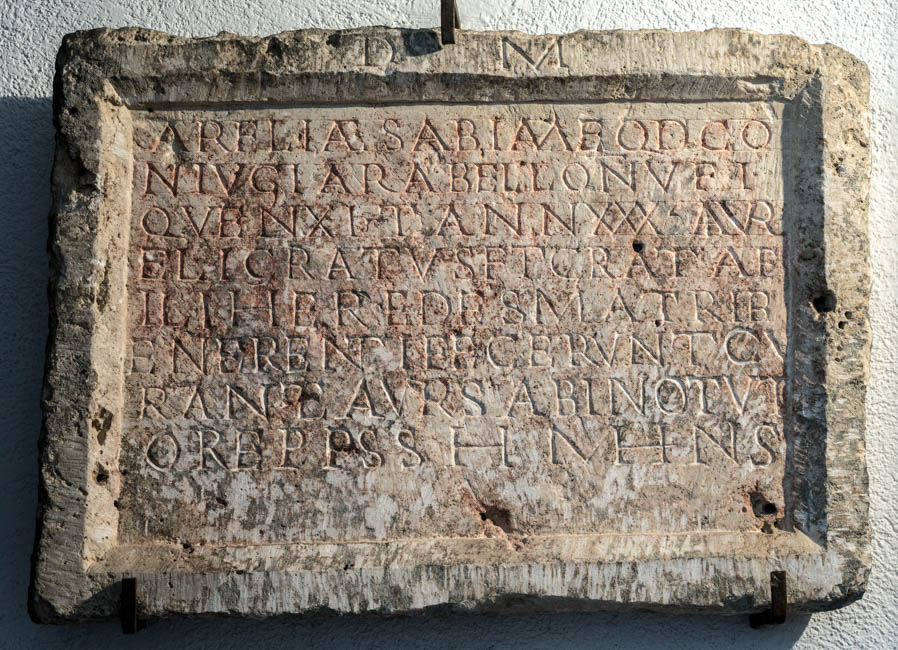 D M
ARELIÆ SABIMEODCO
NIVGI ARABELLONVEI
QVENXITANNXXX AVR
ELIGRATVSETGRATAF
ILIHEREDESMATRIB
ENERENTIFECERVNTCV
RANEAVRSABINOTVT
OREPPSSHIMHNS